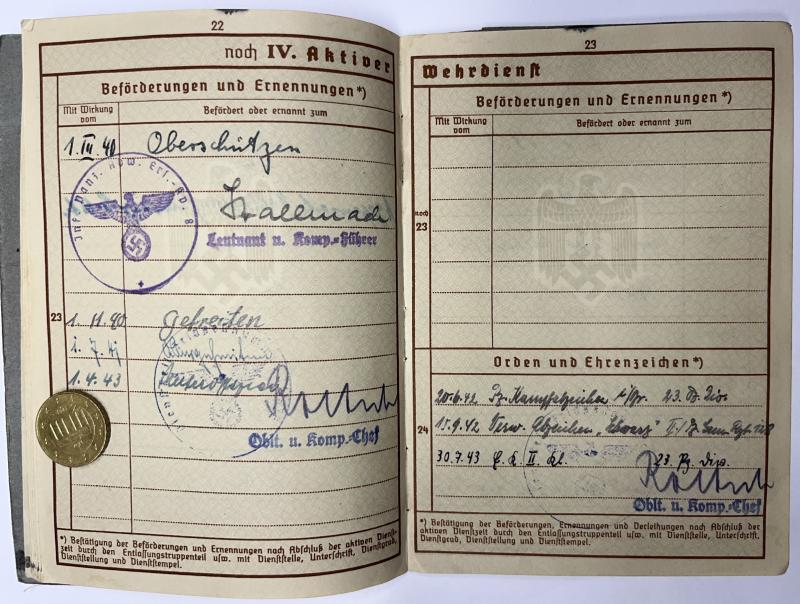 22
noch IV. Aktiver
Beförderungen und Ernennungen*)
Mit Wirkung vom
Befördert oder ernannt zum
1. III. 40 Oberschützen
Inf. Panz. Abw. Ers.
8
Leutnant u. Komp.-Führer
23
1. 11. 40 Gefreiten
1. 7. 41
1. 4. 43 Unteroffizier
Oblt. u. Komp.-Chef
*) Bestätigung der Beförderungen und Ernennungen nach Abschluß der aktiven Dienst-
zeit durch den Entlassungstruppenteil usw. mit Dienststelle, Unterschrift, Dienstgrad,
Dienststellung und Dienststempel.
23
Wehrdienst
Beförderungen und Ernennungen*)
Mit Wirkung vom
Befördert oder ernannt zum
noch
23
Orden und Ehrenzeichen*)
20.6.42 Pz. Kampfabzeichen 23. Pz. Div.
24
15.9.42 Verw. Abzeichen "Schwarz"
30.7.43 E. K. II. Kl. 23. Pz. Div.
Oblt. u. Komp.-Chef
*) Bestätigung der Beförderungen, Ernennungen und Verleihungen nach Abschluß der
aktiven Dienstzeit durch den Entlassungstruppenteil usw. mit Dienststelle, Unterschrift,
Dienstgrad, Dienststellung und Dienststempel.